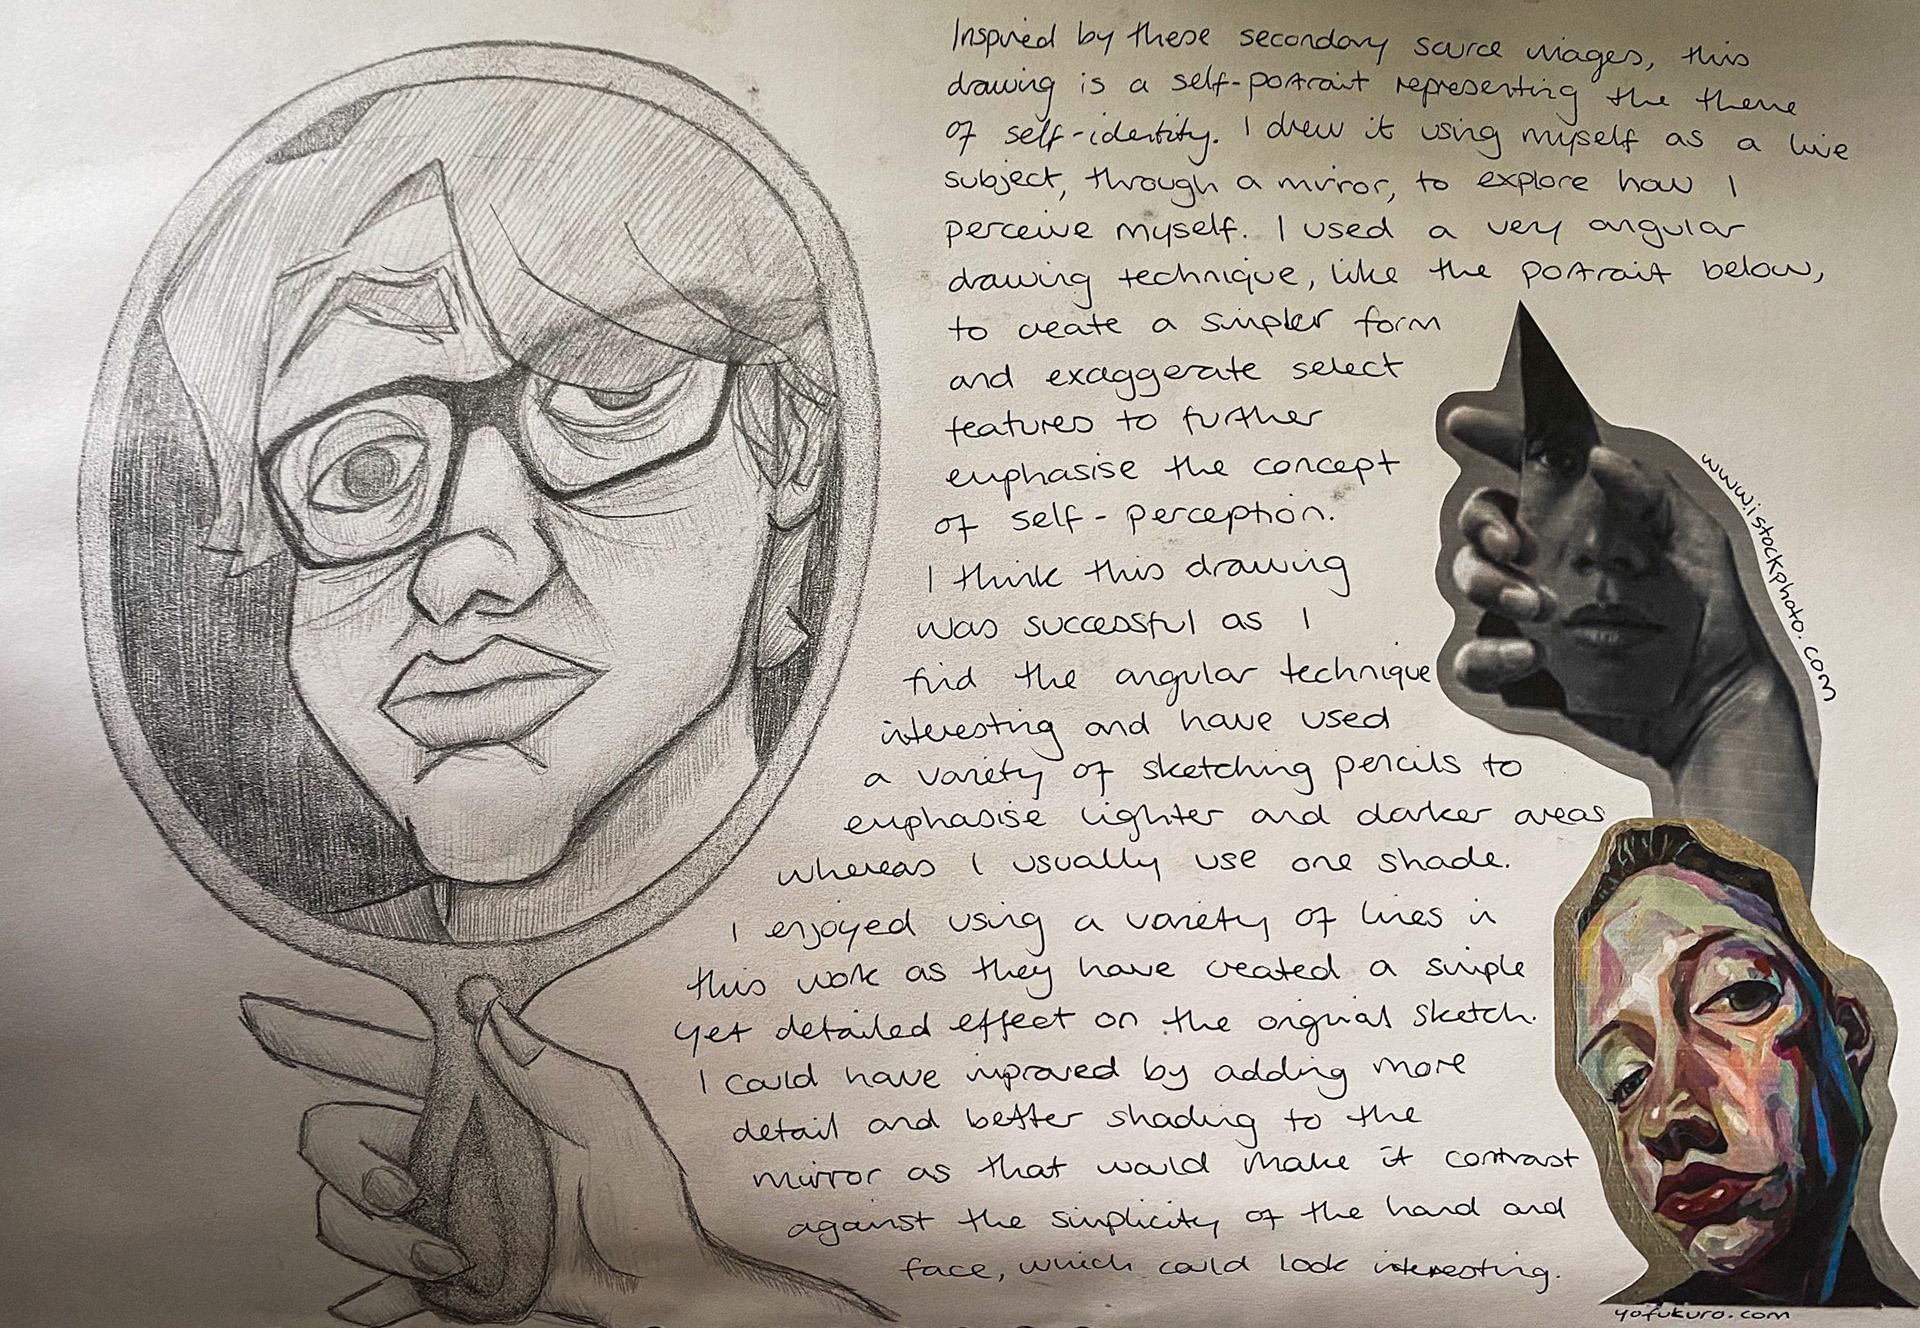 Inspired by these secondary source images, this
drawing is a self-portrait representing the theme
of self-identity. I drew it using myself as a live
subject, through a mirror, to explore how I
perceive myself. I used a very angular
drawing technique, like the portrait below,
to create a simpler form
and exaggerate select
features to further
emphasise the concept
of self-perception.
I think this drawing
was successful as I
find the angular technique
interesting and have used
a variety of sketching pencils to
emphasise lighter and darker areas
whereas I usually use one shade.
I enjoyed using a variety of lines in
this work as they have created a simple
yet detailed effect on the original sketch.
I could have improved by adding more
detail and better shading to the
mirror as that would make it contrast
against the simplicity of the hand and
face, which could look interesting.
www.istockphoto.com
yofukuro.com